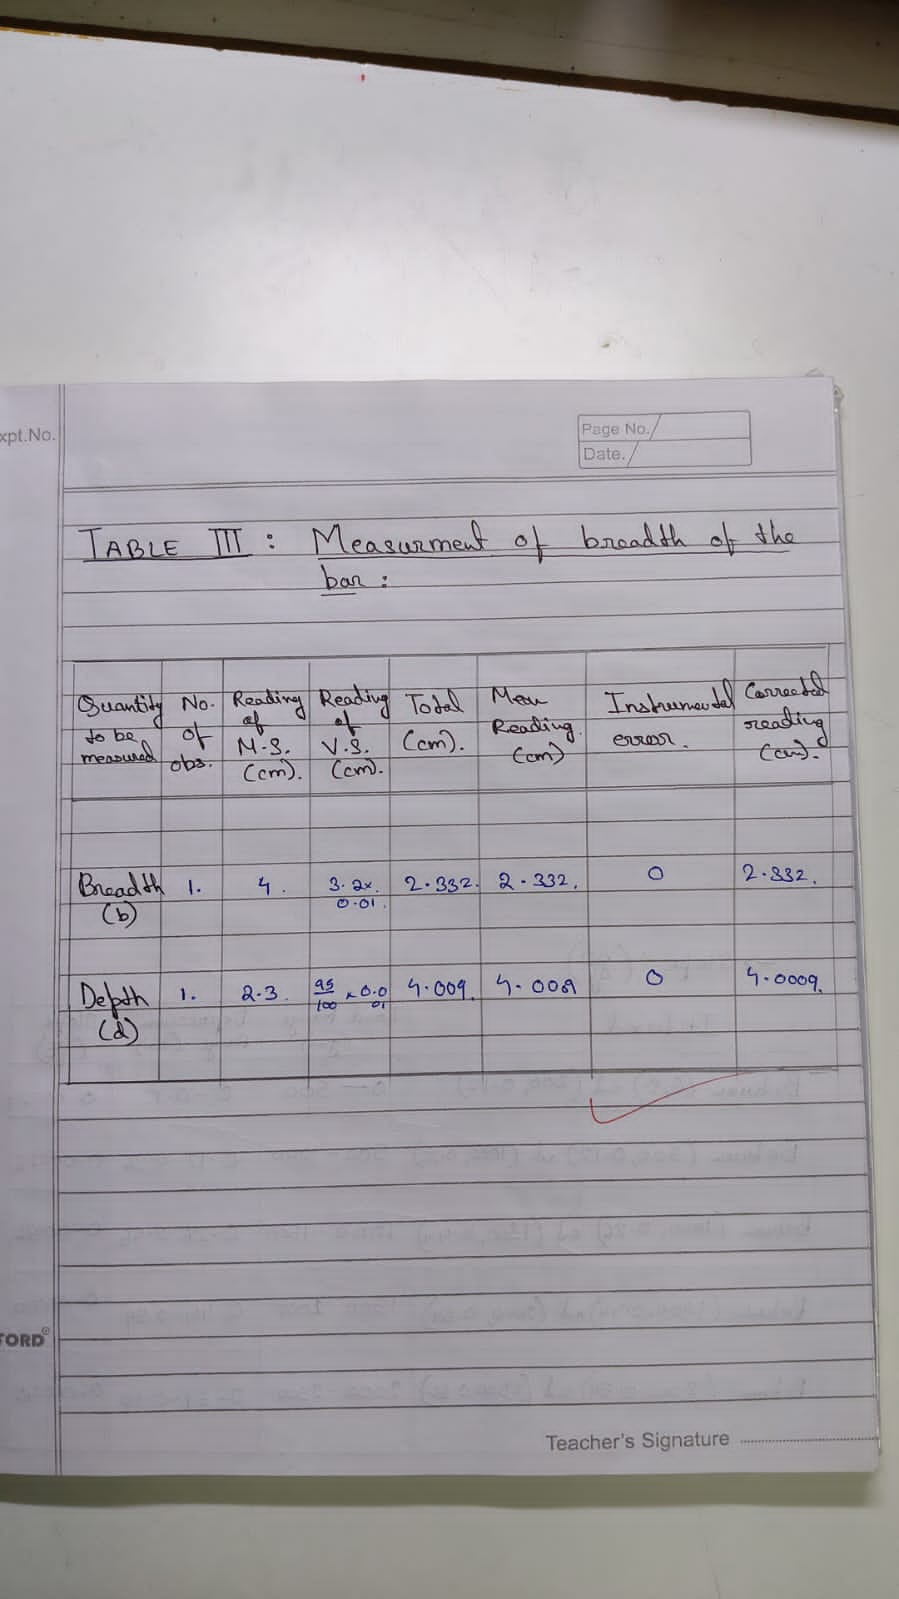 xpt.No.
Page No.
Date.
TABLE III : Measurment of breadth of the
bar :
Quantity to be measured | No. of obs. | Reading of M.S. (cm). | Reading of V.S. (cm). | Total (cm). | Mean Reading. (cm) | Instrumental error. | Corrected reading (cm).
Breadth (b) | 1. | 4. | 3.2x 0.01. | 2.332. | 2.332. | 0 | 2.332.
Depth (d) | 1. | 2.3. | 95/100 x 0.0 01 | 4.009. | 4.009 | 0 | 4.0009.
FORD®
Teacher's Signature